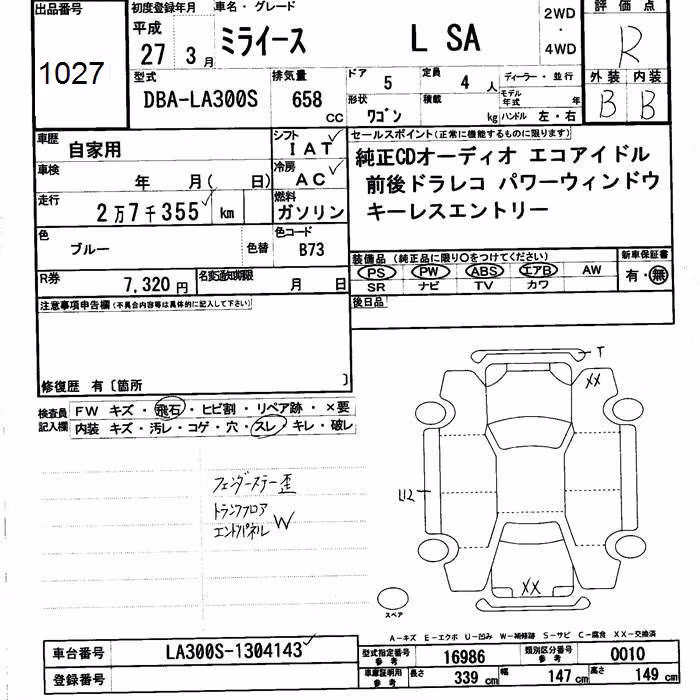 出品番号 初度登録年月 車名・グレード 評価点
1027
平成 27年 3月 ミライース L SA 2WD・4WD R
型式 排気量 ドア 定員 ディーラー・並行 外装 内装
DBA-LA300S 658 CC 5 4 人 B B
形状 積載 モデル年式 年
ワゴン kg ハンドル 左・右
車歴 自家用 シフト IAT セールスポイント(正常に機能するものに限ります)
車検 年 月( 日) 冷房 AC 純正CDオーディオ エコアイドル
走行 2万7千355 km 燃料 ガソリン 前後ドラレコ パワーウィンドウ
キーレスエントリー
色 ブルー 色替 色コード B73 装備品(純正品に限り○をつけてください) 新車保証書
PS PW ABS エアB AW 有・無
R券 7,320円 名変通知期限 月 日 SR ナビ TV カワ
注意事項申告欄(不具合内容等は具体的に記入して下さい) 後日品
修復歴 有〔箇所 〕
検査員記入欄 FW キズ・飛石・ヒビ割・リペア跡・×要
内装 キズ・汚レ・コゲ・穴・スレ・キレ・破レ
T
XX
フェンダーステー歪
トランクフロア
エンドパネル W
U2
XX
スペア
A-キズ E-エクボ U-凹み W-補修跡 S-サビ C-腐食 XX-交換済
車台番号 LA300S-1304143 型式指定番号 参考 16986 類別区分番号 参考 0010
登録番号 車庫証明用 参考 長さ 339 cm 幅 147 cm 高さ 149 cm